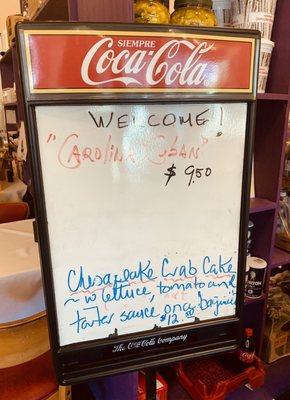 SIEMPRE
Coca-Cola
WELCOME!
"CAROLINA CUBAN"
$9.50
Chesapeake Crab Cake
~ w lettuce, tomato and
tartar sauce on a
$12.
The Coca-Cola Company